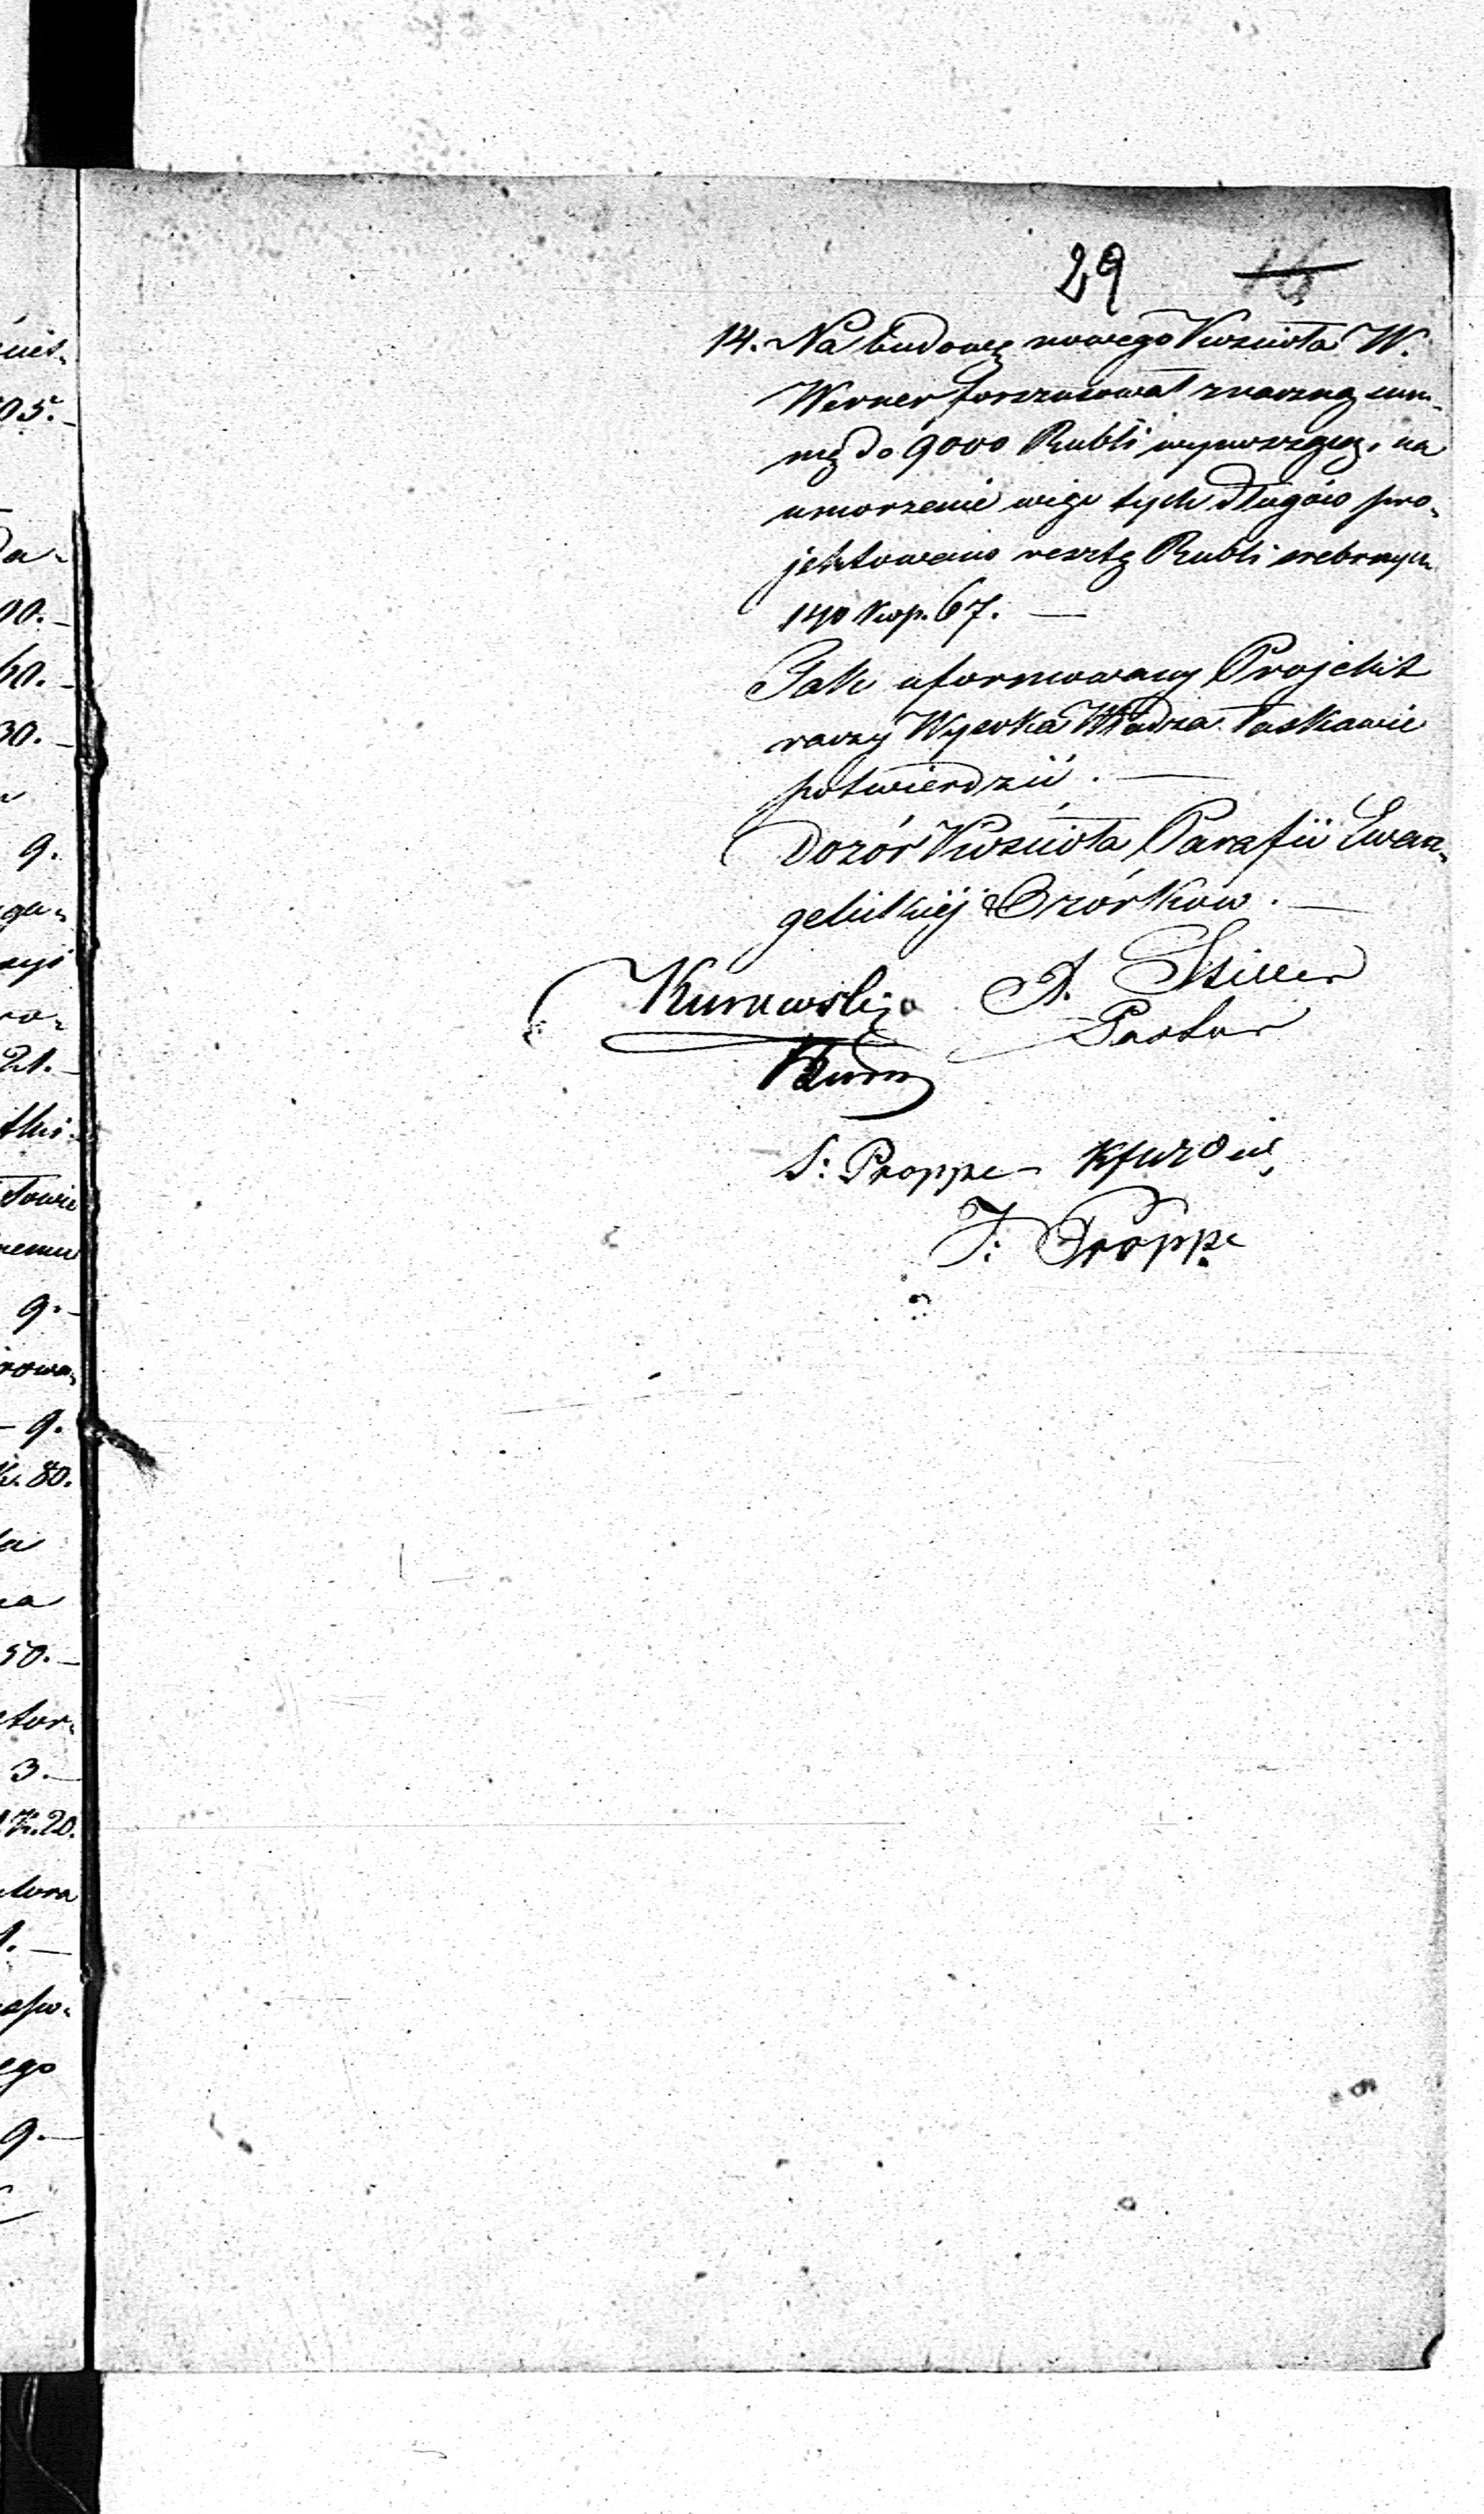 29 16
14. Na budowę nowego Kościoła W.
Werner forszusował znaczną sum„
mę do 9000 Rubli wynoszącą, na
umorzenie więc tych długów pro„
jektowano resztę Rubli srebrnych
140 Kop. 67. —
Tak uformowany Projekt
raczy Wysoka Władza łaskawie
potwierdzić. —
Dozór Kościoła Parafii Ewan„
gelickiéj Ozórkow. —
A. Stiller
Pastor
S: Proppe
J: Proppe
05.—
00.—
60.—
30.—
9.
21.—
nemu
9.—
rowa„
— 9.
K. 80.
50.—
3.—
K. 20.
1.—
ego
9.—